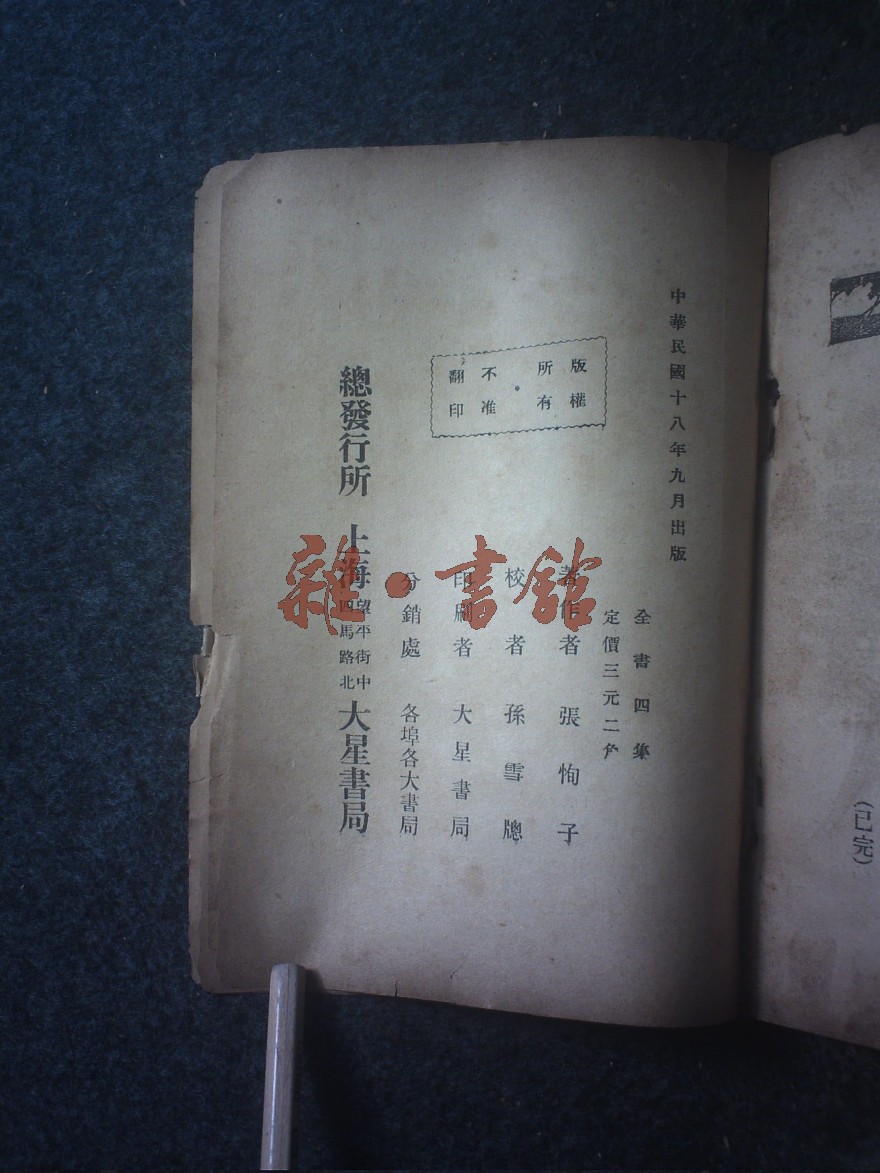 中華民國十八年九月出版
全書四集
定價三元二角
版權
所有
不准
翻印
著作者 張恂子
校者 孫雪聰
印刷者 大星書局
分銷處 各埠各大書局
總發行所 上海 望平街中 四馬路北 大星書局
(已完)
雜·書館